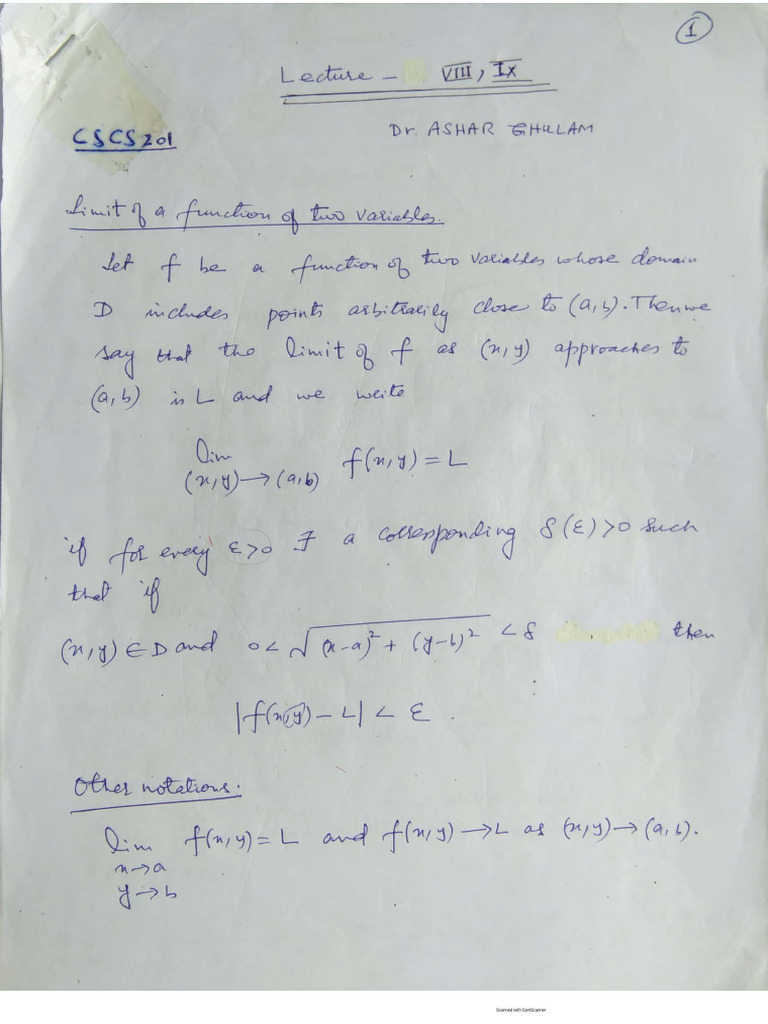 1
Lecture - VIII, IX
CSCS201
Dr. ASHAR GHULAM
Limit of a function of two variables.
Let f be a function of two variables whose domain
D includes points arbitrarily close to (a,b). Then we
say that the limit of f as (x,y) approaches to
(a,b) is L and we write
lim f(x,y) = L
(x,y)→(a,b)
if for every ε>0 ∃ a corresponding δ(ε)>0 such
that if
(x,y) ∈ D and 0 < √(x-a)² + (y-b)² < δ then
|f(x,y) - L| < ε.
Other notations:
lim f(x,y) = L and f(x,y) → L as (x,y) → (a,b).
x→a
y→b
Scanned with GenScanner